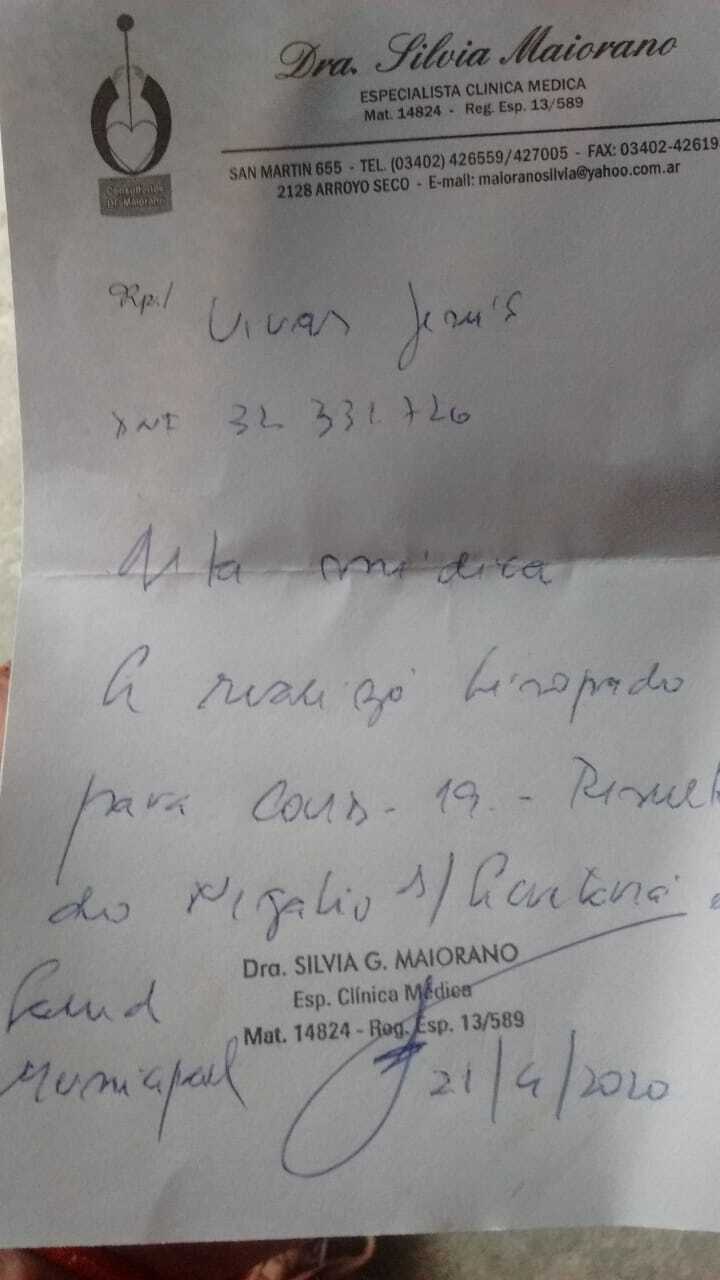 Dra. Silvia Maiorano
ESPECIALISTA CLINICA MEDICA
Mat. 14824 - Reg. Esp. 13/589
Consultorios
Dr. Maiorano
SAN MARTIN 655 - TEL. (03402) 426559/427005 - FAX: 03402-42619
2128 ARROYO SECO - E-mail: maioranosilvia@yahoo.com.ar
Rp./ Vivas Jesús
DNI 32 331 726
Alta médica
Se realizó hisopado
para Covid-19.- Resulta
do Negativo s/ Secretaría
Salud
Municipal
Dra. SILVIA G. MAIORANO
Esp. Clínica Médica
Mat. 14824 - Reg. Esp. 13/589
21/4/2020